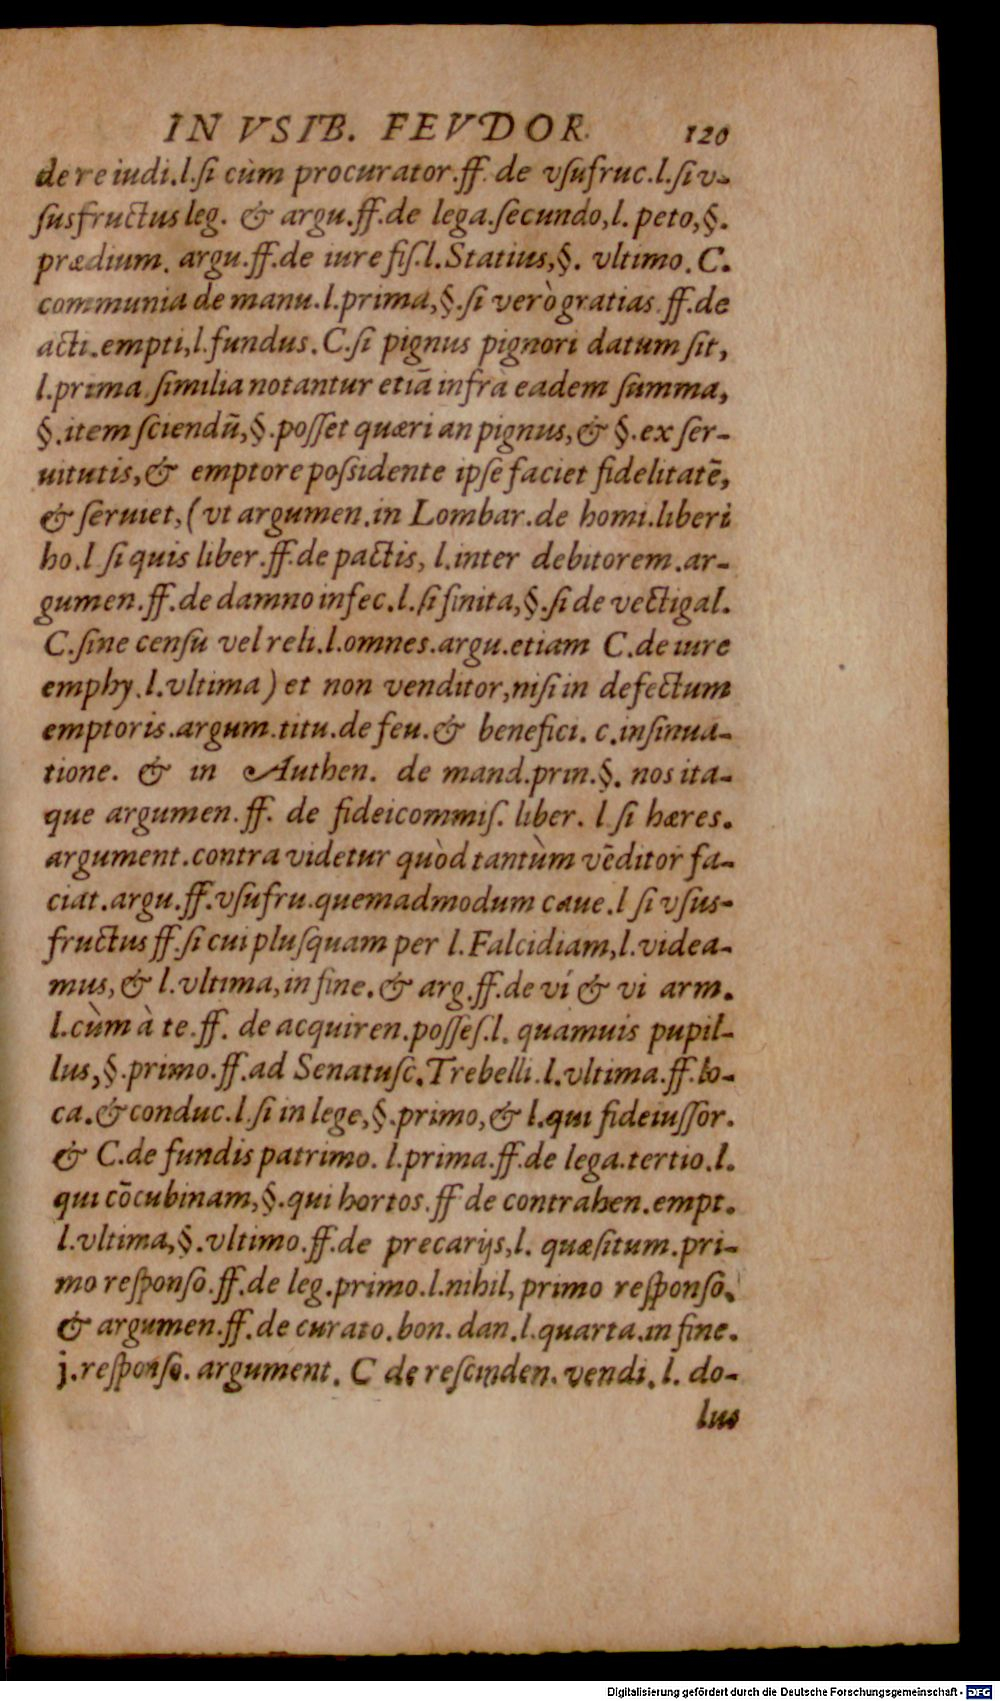 IN VSIB. FEVDOR. 120
de re iudi.l.ſi cùm procurator.ff. de vſufruc.l.ſi v-
ſusfructus leg. & argu.ff.de lega.ſecundo,l. peto,§.
prædium. argu.ff.de iure fiſ.l.Statius,§. vltimo. C.
communia de manu.l.prima,§.ſi verò gratias. ff.de
acti.empti,l.fundus. C.ſi pignus pignori datum ſit,
l.prima ſimilia notantur etiā infrà eadem ſumma,
§.item ſciendū,§.poſſet quæri an pignus,& §.ex ſer-
uitutis,& emptore poſsidente ipſe faciet fidelitatē,
& ſeruiet,(vt argumen.in Lombar.de homi.liberi
ho.l ſi quis liber.ff.de pactis, l.inter debitorem.ar-
gumen.ff.de damno infec.l.ſi finita,§.ſi de vectigal.
C.ſine cenſu vel reli.l.omnes.argu.etiam C.de iure
emphy.l.vltima) et non venditor,niſi in defectum
emptoris.argum.titu.de feu.& benefici. c.inſinua-
tione. & in Authen. de mand.prin.§. nos ita-
que argumen.ff. de fideicommiſ. liber. l ſi hæres.
argument.contra videtur quòd tantùm vēditor fa-
ciat.argu.ff.vſufru.quemadmodum caue.l ſi vſus-
fructus ff.ſi cui pluſquam per l.Falcidiam,l.videa-
mus,& l.vltima,in fine.& arg.ff.de ví & vi arm.
l.cùm à te.ff. de acquiren.poſſeſ.l. quamuis pupil-
lus,§.primo.ff.ad Senatuſc.Trebelli.l.vltima.ff.lo-
ca.& conduc.l.ſi in lege,§.primo,& l.qui fideiuſſor.
& C.de fundis patrimo. l.prima.ff.de lega.tertio.l.
qui cōcubinam,§.qui hortos.ff de contrahen.empt.
l.vltima,§.vltimo.ff.de precarijs,l. quæſitum.pri-
mo reſponſo.ff.de leg.primo.l.nihil,primo reſponſo.
& argumen.ff.de curato.bon. dan.l.quarta.in fine.
j.reſponſo. argument. C de reſcinden. vendi. l. do-
lus
Digitalisierung gefördert durch die Deutsche Forschungsgemeinschaft - DFG